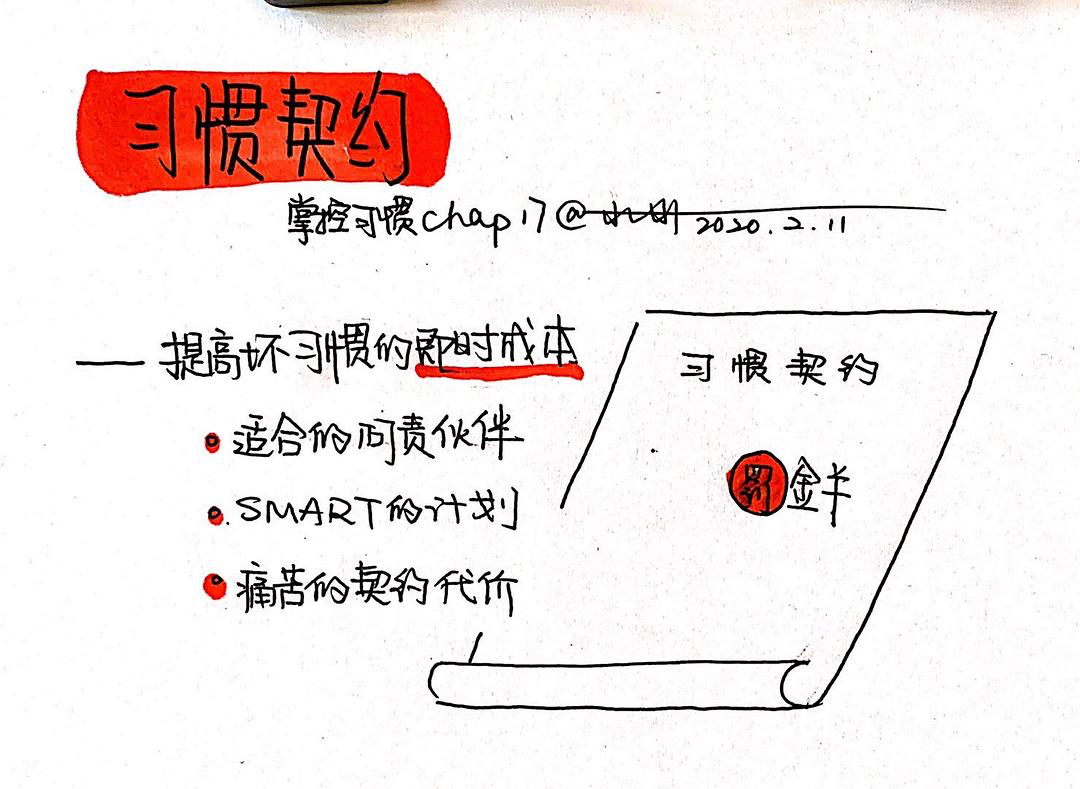 习惯契约
掌控习惯chap17@ 2020.2.11
—— 提高坏习惯的即时成本
适合的问责伙伴
SMART的计划
痛苦的契约代价
习惯契约
罚金卡